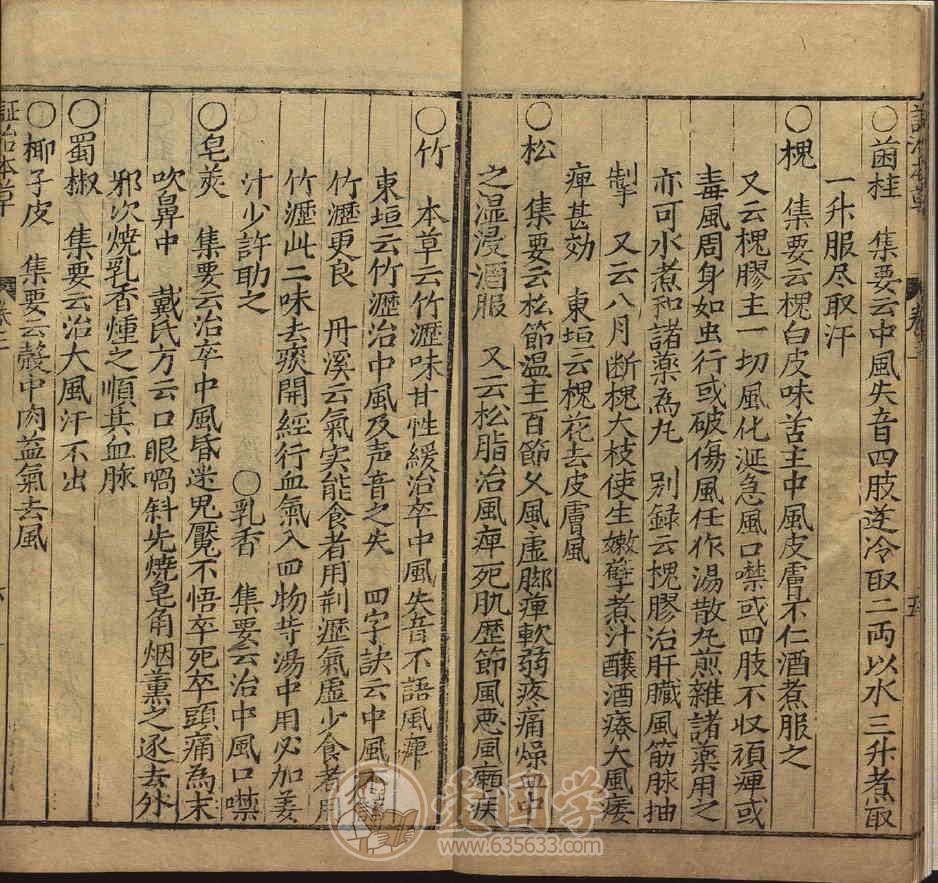 ○菌桂　集要云中風失音四肢逆冷取二両以水三升煮取
一升服尽取汗
○槐　集要云槐白皮味苦主中風皮膚不仁酒煮服之
又云槐膠主一切風化涎急風口噤或四肢不収頑痺或
毒風周身如虫行或破傷風任作湯散丸煎雑諸薬用之
亦可水煮和諸薬為丸　別録云槐膠治肝臟風筋脉抽
掣　又云八月断槐大枝使生嫩孽煮汁釀酒療大風痿
痺甚効　東垣云槐花去皮膚風
○松　集要云松節温主百節久風虚脚痺軟弱疼痛燥血中
之湿浸酒服　又云松脂治風痺死肌歴節風悪風癩疾
○竹　本草云竹瀝味甘性緩治卒中風失音不語風痺
東垣云竹瀝治中風及声音之失　四字訣云中風不
竹瀝更良　丹溪云氣实能食者用荆瀝氣虚少食者用
竹瀝此二味去痰開經行血氣入四物等湯中用必加姜
汁少許助之　○乳香　集要云治中風口噤
○皂莢　集要云治卒中風昏迷鬼魘不悟卒死卒頭痛為末
吹鼻中　戴氏方云口眼喎斜先焼皂角烟薫之逐去外
邪次焼乳香煄之順其血脉
○蜀椒　集要云治大風汗不出
○椰子皮　集要云殼中肉益氣去風
証治本草
卷之二
www.635633.com